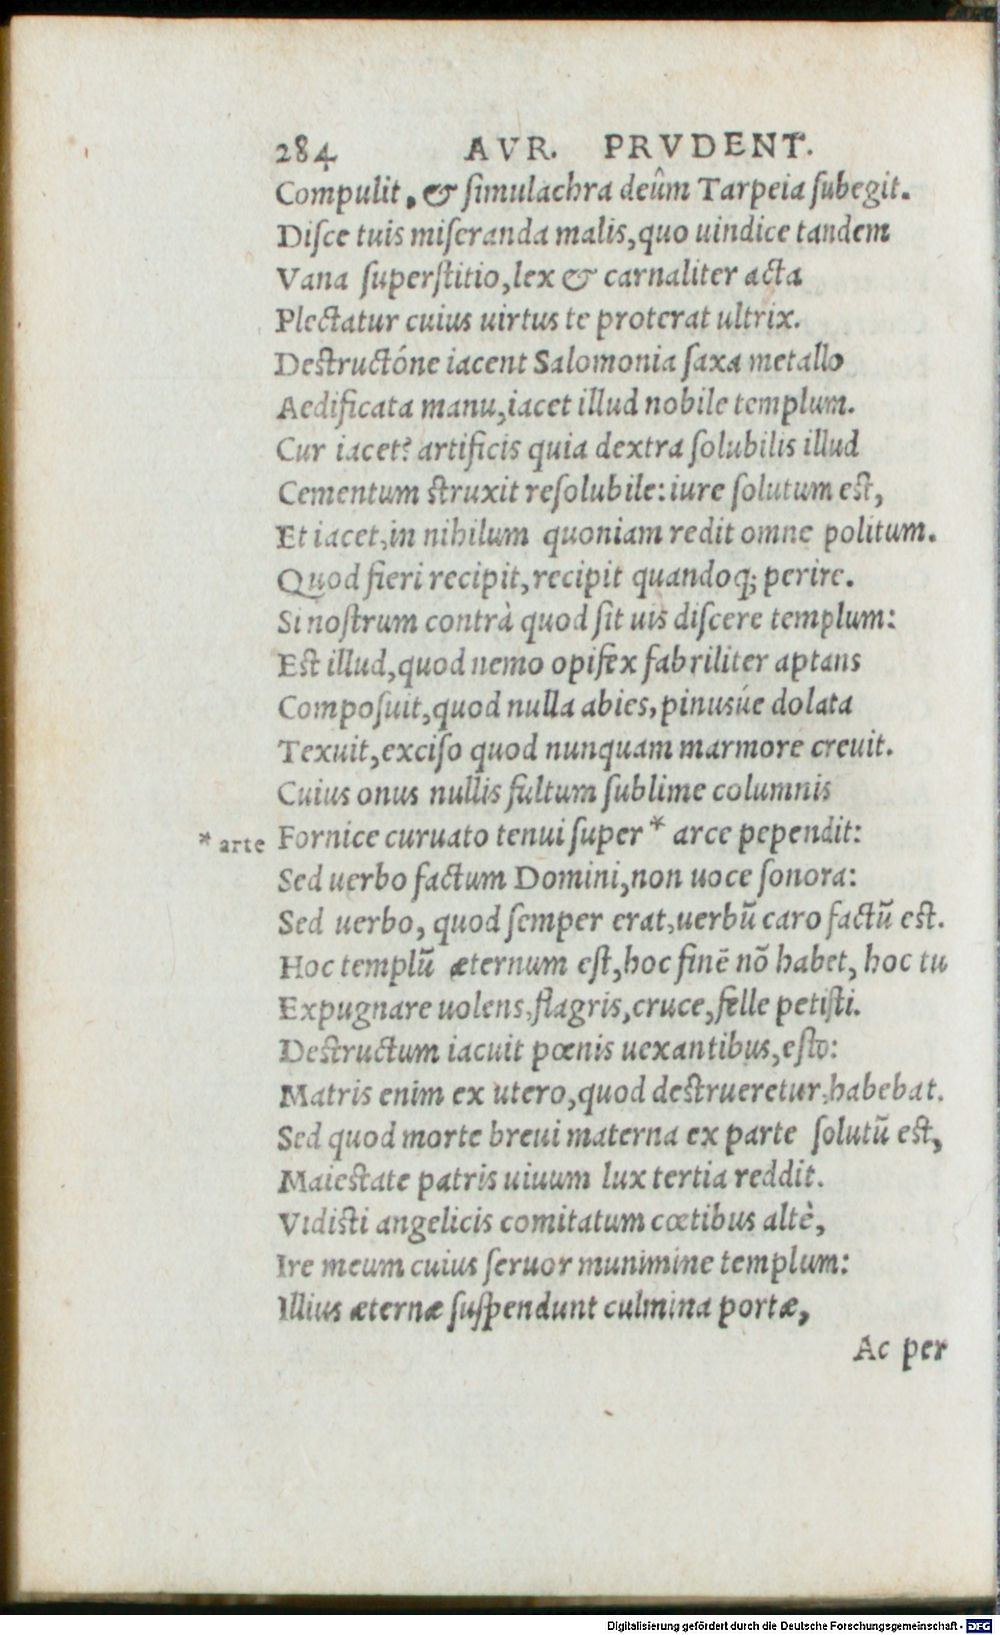 284 AVR. PRVDENT.
Compulit, & ſimulachra deûm Tarpeia ſubegit.
Diſce tuis miſeranda malis, quo uindice tandem
Vana ſuperſtitio, lex & carnaliter acta
Plectatur cuius uirtus te proterat ultrix.
Deſtructóne iacent Salomonia ſaxa metallo
Aedificata manu, iacet illud nobile templum.
Cur iacet? artificis quia dextra ſolubilis illud
Cementum ſtruxit reſolubile: iure ſolutum eſt,
Et iacet, in nihilum quoniam redit omne politum.
Quod fieri recipit, recipit quandoq; perire.
Si noſtrum contrà quod ſit uis diſcere templum:
Eſt illud, quod nemo opifex fabriliter aptans
Compoſuit, quod nulla abies, pinusúe dolata
Texuit, exciſo quod nunquam marmore creuit.
Cuius onus nullis fultum ſublime columnis
* arte Fornice curuato tenui ſuper * arce pependit:
Sed uerbo factum Domini, non uoce ſonora:
Sed uerbo, quod ſemper erat, uerbũ caro factũ eſt.
Hoc templũ æternum eſt, hoc finẽ nõ habet, hoc tu
Expugnare uolens, flagris, cruce, felle petiſti.
Deſtructum iacuit pœnis uexantibus, eſto:
Matris enim ex utero, quod deſtrueretur, habebat.
Sed quod morte breui materna ex parte ſolutũ eſt,
Maieſtate patris uiuum lux tertia reddit.
Vidiſti angelicis comitatum cœtibus altè,
Ire meum cuius ſeruor munimine templum:
Illius æternæ ſuſpendunt culmina portæ,
Ac per
Digitalisierung gefördert durch die Deutsche Forschungsgemeinschaft - DFG